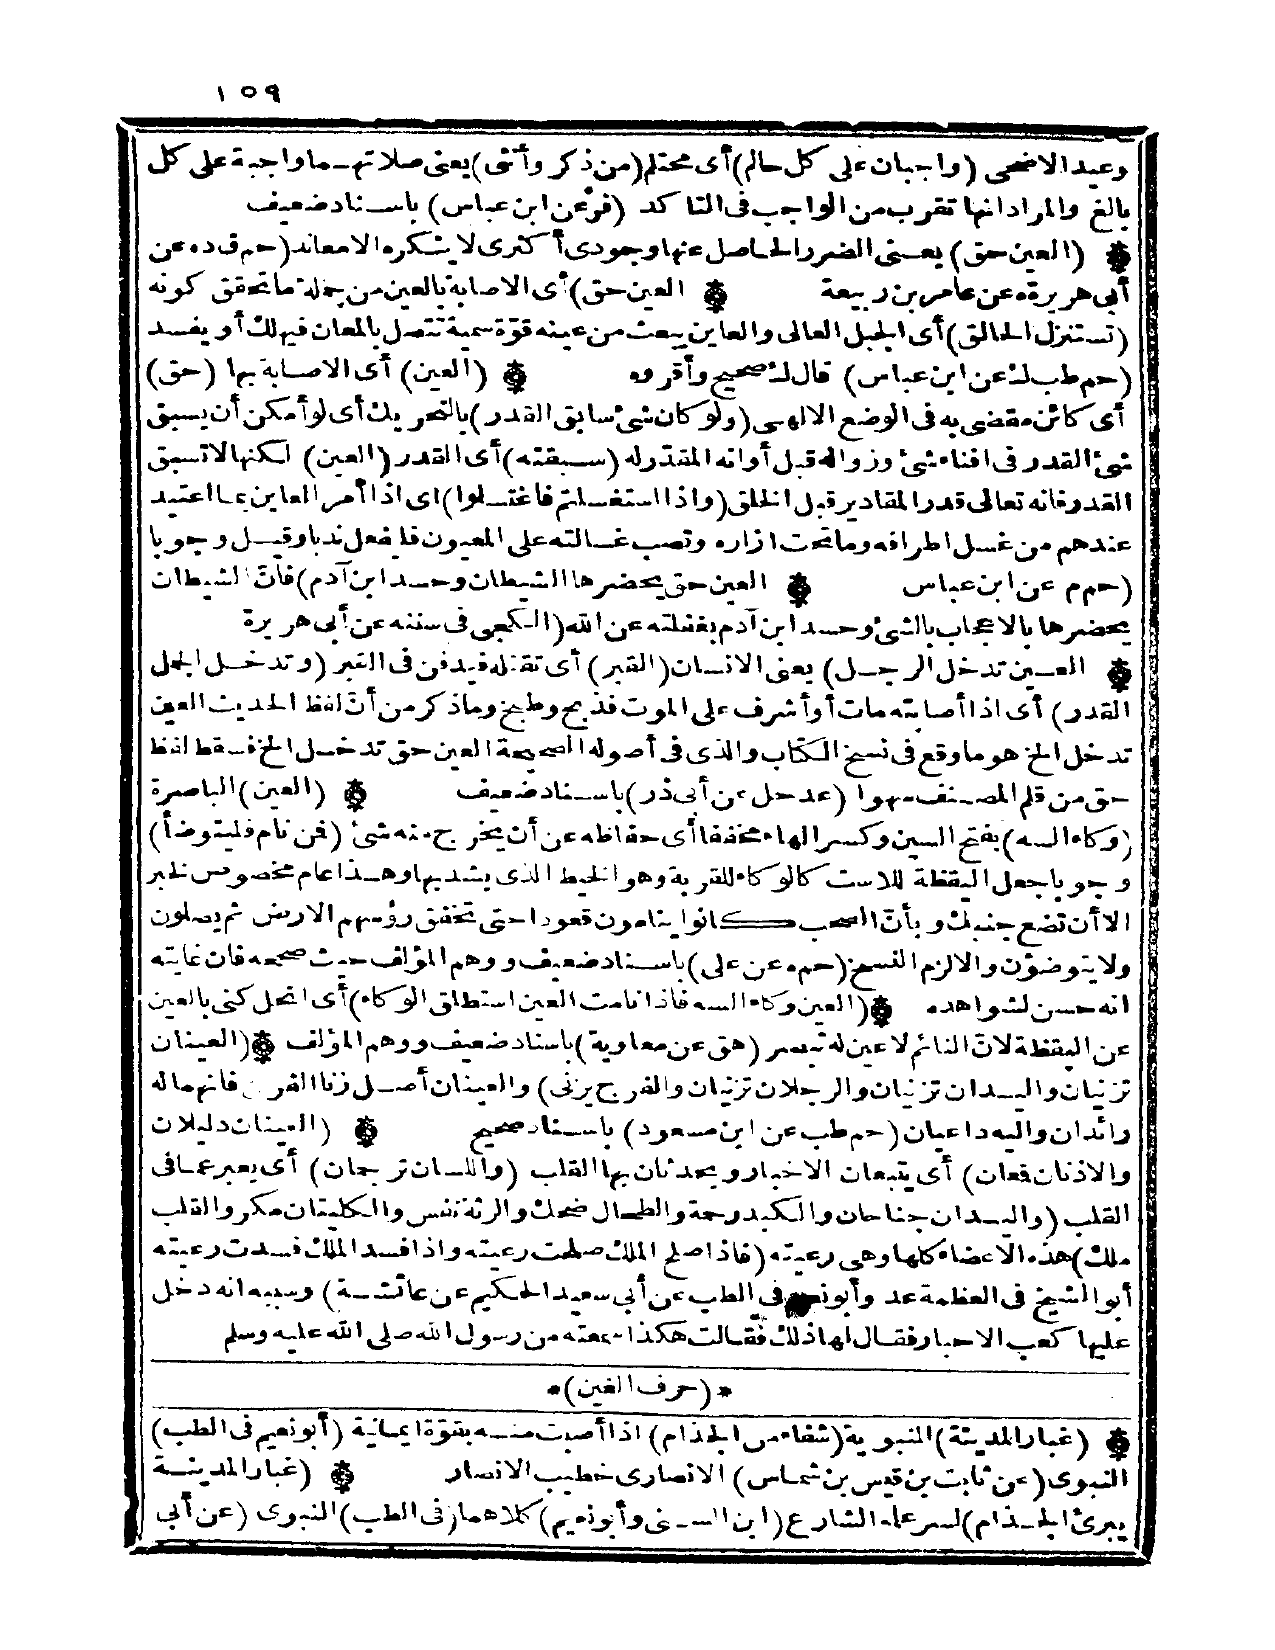 ١٥٩
وعيد الاضحى (واجبان على كل حالم) أى محتلم (من ذكر وأنثى) يعنى صلاتهما واجبة على كل
بالغ والمراد انها تقرب من الواجب فى التاكد (فر عن ابن عباس) باسناد ضعيف
۞ (العين حق) يعنى الضرر الحاصل عنها وجودى أكثرى لا ينكره الا معاند (حم ق د ه عن
أبى هريرة ه عن عامر بن ربيعة ۞ العين حق) أى الاصابة بالعين من جملة ما تحقق كونه
(تستنزل الحالق) أى الجبل العالى والعاين يبعث من عينه قوة سمية تتصل بالمعان فيهلك أو يفسد
(حم طب ك عن ابن عباس) قال ك صحيح وأقروه ۞ (العين) أى الاصابة بها (حق)
أى كائن مقضى به فى الوضع الالهى (ولو كان شئ سابق القدر) بالتحريك أى لو أمكن أن يسبق
شئ القدر فى افناء شئ وزواله قبل أوانه المقدر له (سبقته) أى القدر (العين) لكنها لا تسبق
القدر فانه تعالى قدر المقادير قبل الخلق (واذا استغسلتم فاغتسلوا) اى اذا أمر العاين بما اعتيد
عندهم من غسل اطرافه وما تحت ازاره وتصب غسالته على المعيون فليفعل ندبا وقيل وجوبا
(حم م عن ابن عباس ۞ العين حق يحضرها الشيطان وحسد ابن آدم) فانّ الشيطان
يحضرها بالاعجاب بالشئ وحسد ابن آدم بغفلته عن الله (الكجى فى سننه عن أبى هريرة
۞ العين تدخل الرجل) يعنى الانسان (القبر) أى تقتله فيدفن فى القبر (وتدخل الجمل
القدر) أى اذا أصابته مات أو أشرف على الموت فذبح وطبخ وما ذكر من أن لفظ الحديث العين
تدخل الخ هو ما وقع فى نسخ الكتاب والذى فى أصوله الصحيحة العين حق تدخل الخ فسقط لفظ
حق من قلم المصنف سهوا (عد حل عن أبى ذر) باسناد ضعيف ۞ (العين) الباصرة
(وكاء السه) بفتح السين وكسر الهاء مخففا أى حفاظه عن أن يخرج منه شئ (فمن نام فليتوضأ)
وجوبا جعل اليقظة للاست كالوكاء للقربة وهو الخيط الذى يشد بها وهذا عام مخصوص لخبر
الا أن تضع جنبك وبأنّ الصحب كانوا ينامون قعودا حتى تخفق رؤسهم الارض ثم يصلون
ولا يتوضؤن والا لزم النسخ (حم ه عن على) باسناد ضعيف ووهم المؤلف حيث صححه فان غايته
انه حسن لشواهده ۞ (العين وكاء السه فاذا نامت العين استطلق الوكاء) أى انحل كنى بالعين
عن اليقظة لانّ النائم لا عين له تبصر (هق عن معاوية) باسناد ضعيف ووهم المؤلف ۞ (العينان
تزنيان واليدان تزنيان والرجلان تزنيان والفرج يزنى) والعينان أصل زنا الفرج فانهما له
رائدان واليه داعيان (حم طب عن ابن مسعود) باسناد صحيح ۞ (العينان دليلان
والاذنان قعان) أى يتبعان الاخبار ويحدثان بها القلب (واللسان ترجمان) أى يعبر عما فى
القلب (واليدان جناحان والكبد رحمة والطحال ضحك والرئة نفس والكليتان مكر والقلب
ملك) هذه الاعضاء كلها وهى رعيته (فاذا صلح الملك صلحت رعيته واذا فسد الملك فسدت رعيته
أبو الشيخ فى العظمة عد وأبو نعيم فى الطب عن أبى سعيد الحكيم عن عائشة) وسببه انه دخل
عليها كعب الاحبار فقال لها ذلك فقالت هكذا سمعته من رسول الله صلى الله عليه وسلم
* (حرف الغين) *
۞ (غبار المدينة) النبوية (شفاء من الجذام) اذا أصبت منه بقوة ايمانية (أبو نعيم فى الطب)
النبوى (عن ثابت بن قيس بن شماس) الانصارى خطيب الانصار ۞ (غبار المدينة
يبرئ الجذام) لسر علمه الشارع (ابن السنى وأبو نعيم) كلاهما (فى الطب) النبوى (عن أبى